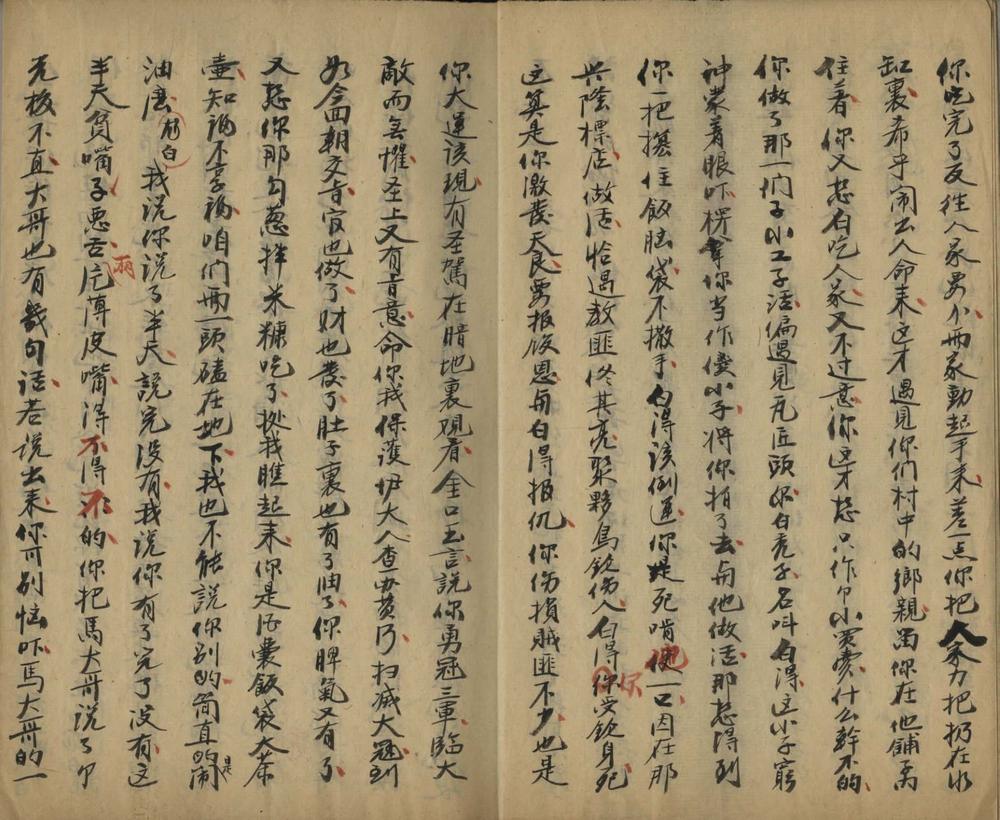 你吃完了反往人家要小両家動起手来差一点你把人家力把扔在水
缸裏希乎闹出人命来这才遇見你们村中的鄉親留你在他鋪子
住着你又想白吃人家又不过意你这才想只作个小買賣什么幹不的
你做了那一们子小工子活偏遇見瓦匠頭你白秃子名叫白得这小子窮
神蒙着眼吓楞拿你当作傻小子将你拍了去与他做活那想得到
你一把揝住飯脑袋不撒手白得该倒運你是死啃一口因在那
兴隆標店做活恰遇教匪佟其亮聚夥鳥鎗伤人白得你受鎗身死
这算是你激發天良要报飯恩与白得报仇你伤損賊匪不少也是
你大運该現有圣駕在暗地裏观看金口玉言説你勇冠三軍臨大
敵而無懼圣上又有旨意命你我保護大人查辦黄河扫滅大冦到
如今回朝交旨官也做了财也發了肚子裏也有了油了你脾氣又有了
又想你那勾葱拌米糠吃了拠我瞧起来你是酒囊飯袋大茶
壶知福不享福咱们両頭磕在地下我也不能説你别的简直的是闹
油唐 白 我説你説了半天説完没有我説你有了完了没有这
半天贫嘴子悪舌庀薄皮嘴得不得不的你把馬大哥说了个
无板不直大哥也有幾句话若説出来你可别恼吓馬大哥的一